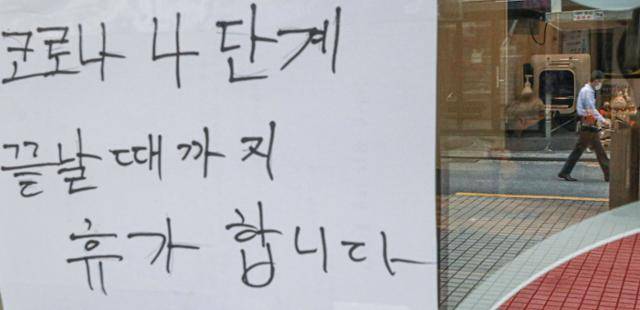 코로나 4 단계
끝날 때까지
휴가 합니다